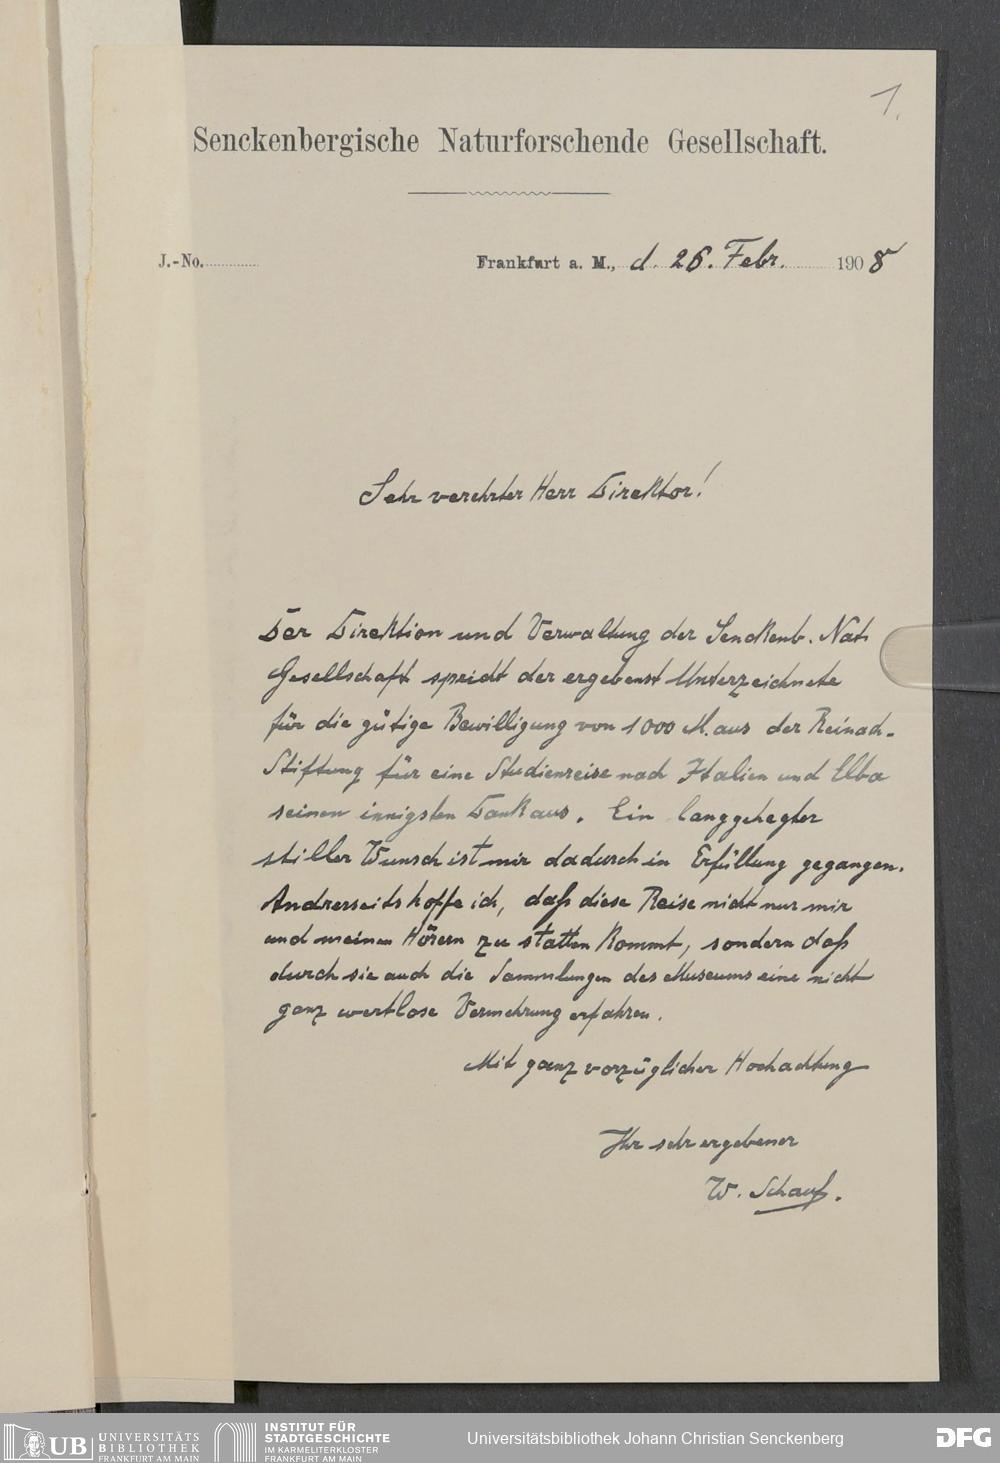 1.
Senckenbergische Naturforschende Gesellschaft.
J.-No.
Frankfurt a. M., d. 26. Febr. 1908
Sehr verehrter Herr Direktor!
Der Direktion und Verwaltung der Senckenb. Nat.
Gesellschaft spricht der ergebenst Unterzeichnete
für die gütige Bewilligung von 1000 M. aus der Reinach-
Stiftung für eine Studienreise nach Italien und Elba
seinen innigsten Dank aus. Ein langgehegter
stiller Wunsch ist mir dadurch in Erfüllung gegangen.
Andrerseits hoffe ich, daß diese Reise nicht nur mir
und meinen Hörern zu statten kommt, sondern daß
durch sie auch die Sammlungen des Museums eine nicht
ganz wertlose Vermehrung erfahren.
Mit ganz vorzüglicher Hochachtung
Ihr sehr ergebener
W. Schauf.
UB
UNIVERSITÄTS
BIBLIOTHEK
FRANKFURT AM MAIN
INSTITUT FÜR
STADTGESCHICHTE
IM KARMELITERKLOSTER
FRANKFURT AM MAIN
Universitätsbibliothek Johann Christian Senckenberg
DFG